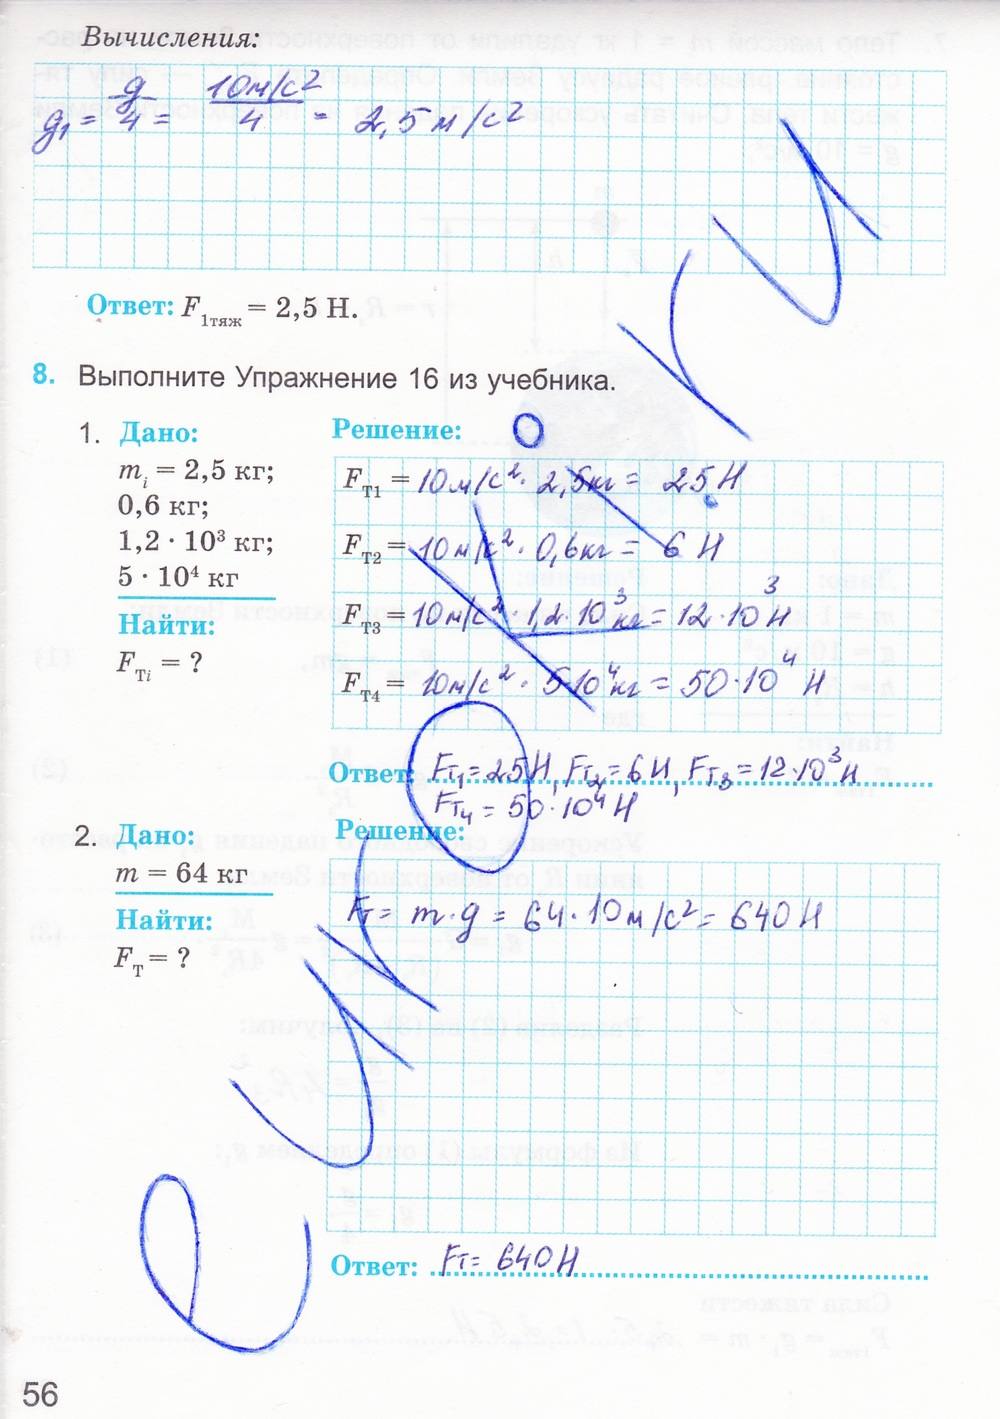 Вычисления:
g₁ = g/4 = 10м/с²/4 = 2,5м/с²
Ответ: F₁тяж = 2,5 Н.
8. Выполните Упражнение 16 из учебника.
1. Дано:
mᵢ = 2,5 кг;
0,6 кг;
1,2 · 10³ кг;
5 · 10⁴ кг
Найти:
Fтᵢ = ?
Решение:
Fт1 = 10м/с² · 2,5кг = 25 Н
Fт2 = 10м/с² · 0,6кг = 6 Н
Fт3 = 10м/с² · 1,2·10³кг = 12·10³Н
Fт4 = 10м/с² · 5·10⁴кг = 50·10⁴ Н
Ответ: Fт₁=25Н, Fт₂=6Н, Fт₃=12·10³Н
Fт₄ = 50·10⁴Н
2. Дано:
m = 64 кг
Найти:
Fт = ?
Решение:
Fт = m·g = 64·10м/с² = 640Н
Ответ: Fт = 640Н
56